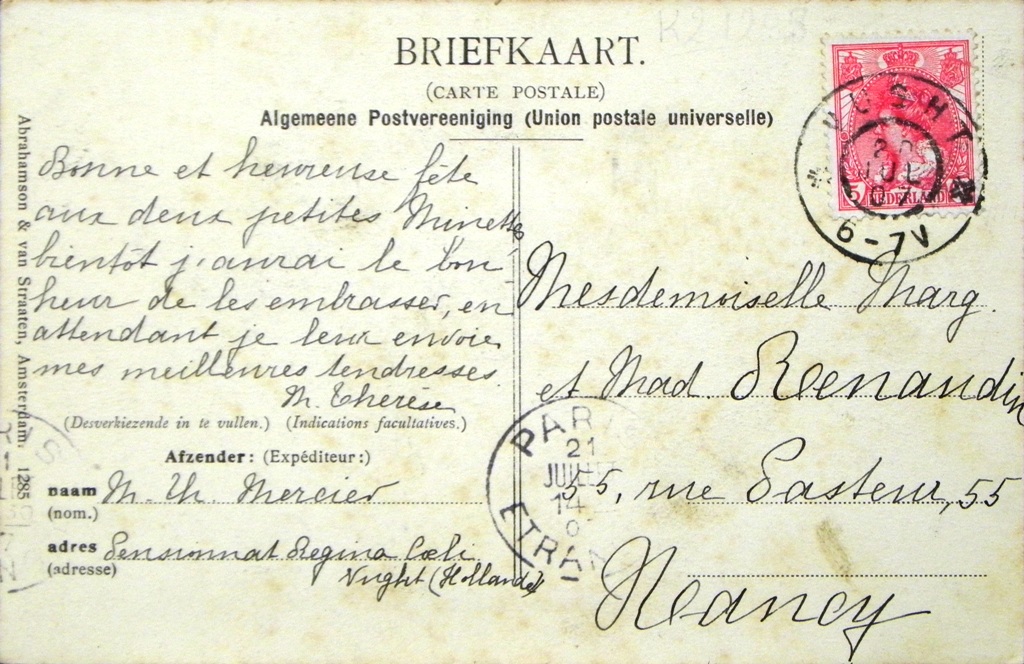 BRIEFKAART.
(CARTE POSTALE)
Algemeene Postvereeniging (Union postale universelle)
Bonne et heureuse fête
aux deux petites Minettes,
bientôt j'aurai le bon
heur de les embrasser, en
attendant je leur envoie
mes meilleures tendresses.
M. Thérèse
(Desverkiezende in te vullen.) (Indications facultatives.)
Afzender: (Expéditeur:)
naam M. Th. Mercier
(nom.)
adres Pensionnat Regina Cœli
(adresse) Vught (Hollande)
Abrahamson & van Straaten, Amsterdam. 1285
VUGHT
20
JUL
07
6-7V
5 NEDERLAND
Mesdemoiselle Marg.
et Mad. Renaudin
55, rue Pasteur, 55
Nancy
PAR
21
JUILLET
14
0
ETRAN